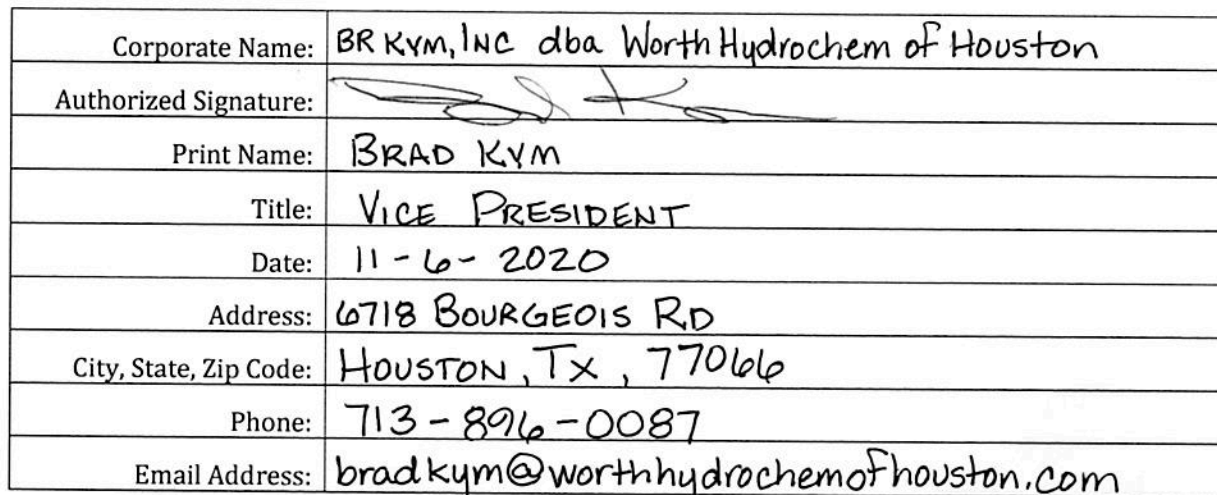 Corporate Name: BR KYM, INC dba Worth Hydrochem of Houston
Authorized Signature:
Print Name: BRAD KYM
Title: VICE PRESIDENT
Date: 11-6-2020
Address: 6718 BOURGEOIS RD
City, State, Zip Code: HOUSTON, TX, 77066
Phone: 713-896-0087
Email Address: bradkym@worthhydrochemofhouston.com